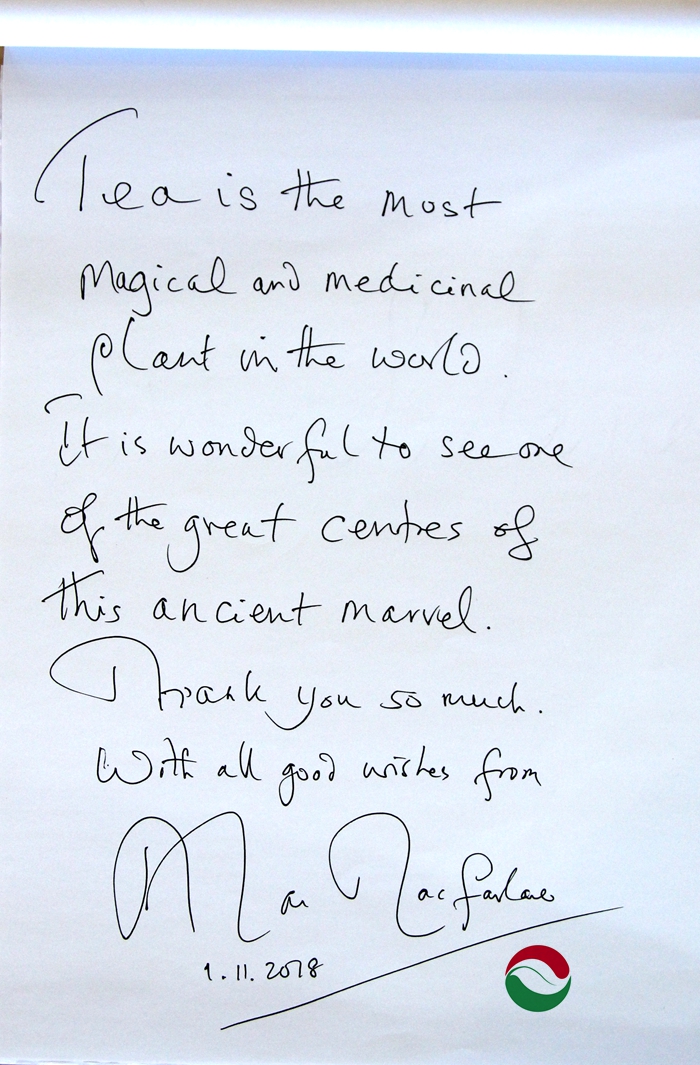 Tea is the most
magical and medicinal
plant in the world.
It is wonderful to see one
of the great centres of
this ancient marvel.
Thank you so much.
With all good wishes from
Macfarlane
1.11.2018